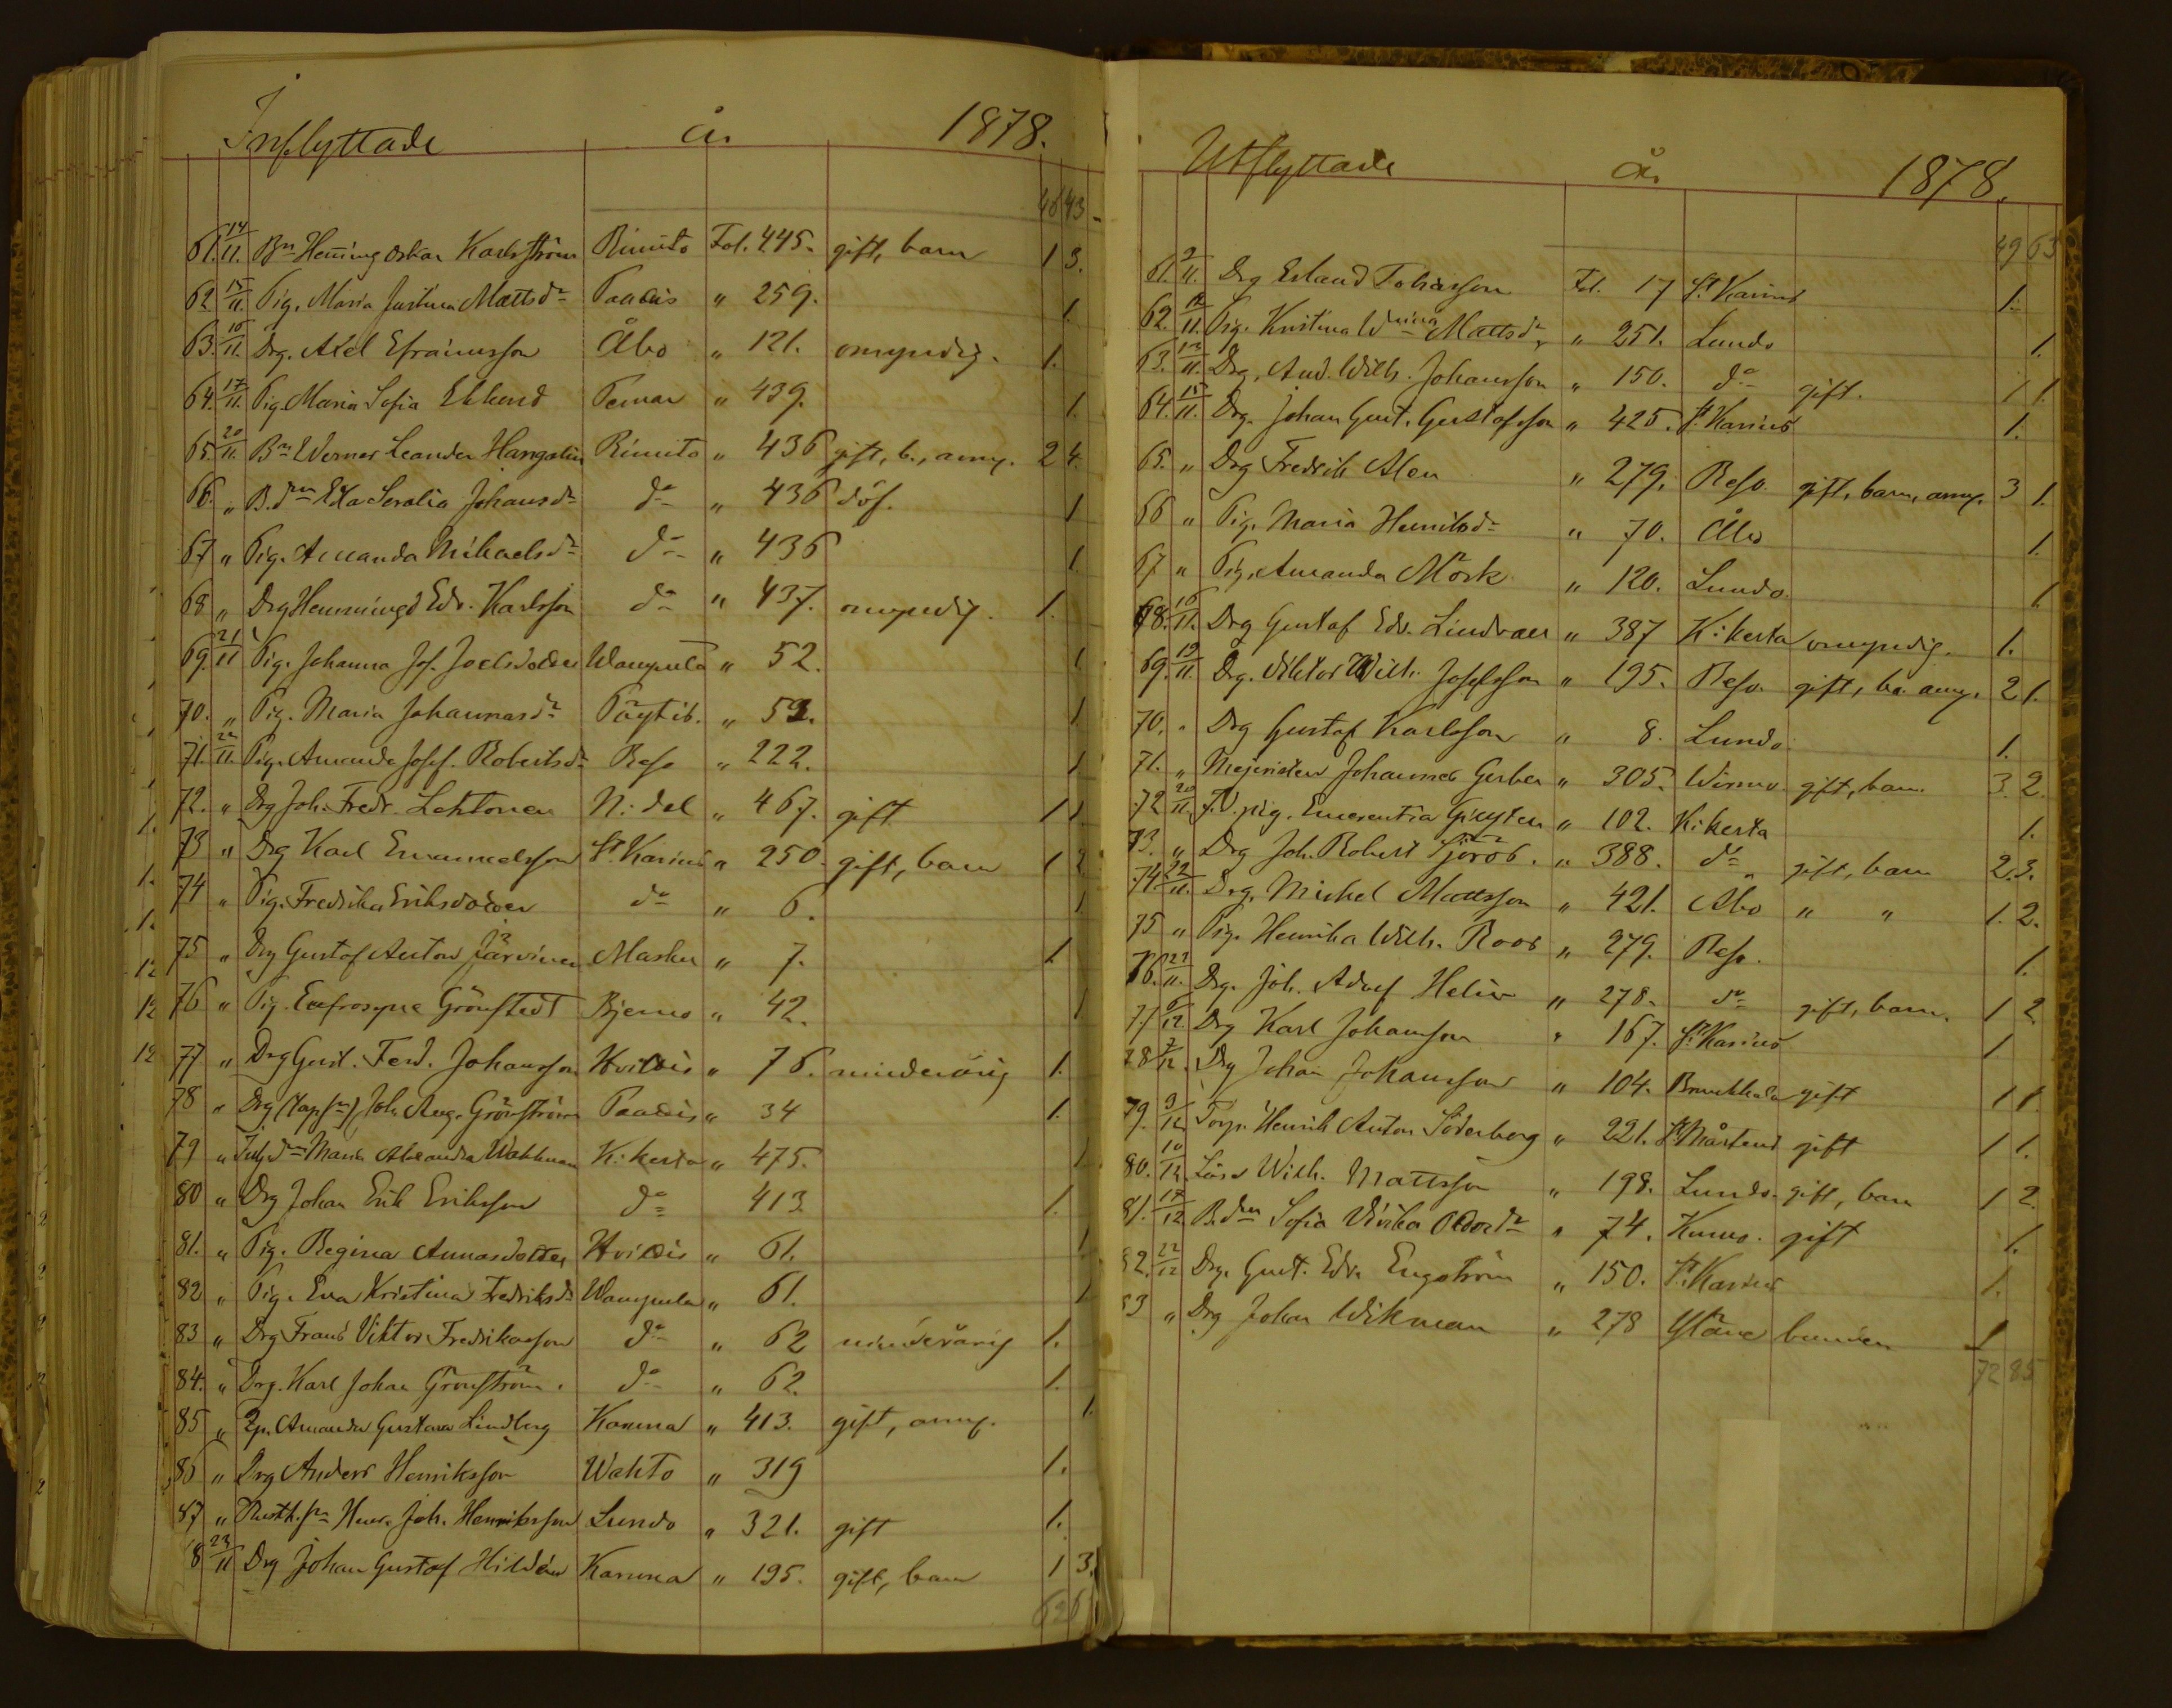 Inflyttade år 1878.
46 43
61. 14/11. Bn Hening Oskar Karlsström Rimito Fol. 445. gift, barn 1 3.
62 15/11. Pig. Maria Justina Mattsdr Paadis " 259. 1.
63. 16/11. Drg. Axel Efraimsson Åbo " 121. omyndig. 1.
64. 17/11. Pig. Maria Sofia Eklund Pemar " 439. 1.
65. 20/11. Bn Werner Leander Hangelin Rimito " 436 gift, b., amm. 2 4.
66. " B.drn Johansdr do " 436 döf. 1
67 " Pig. Amanda Mikaelsdr do " 436 1.
68 " Drg Hemming Edv. Karlsson do " 437. omyndig. 1.
69. 21/11 Pig. Johanna Jos. Joelsdotter Wampula " 52. 1
70. " Pig. Maria Johannasdr Pöytis. " 52. 1
71. 22/11. Pig. Amanda Josef. Robertsdr Reso " 222. 1.
72. " Drg Joh. Fredr. Lehtonen N: del " 467. gift 1 1
73 " Drg Karl Emanuelsson St Karins " 250. gift, barn 1 2
74 " Pig. Fredrika Eriksdotter do " 6. 1
75 " Drg Gustaf Anton Järvinen Masku " 7. 1.
76 " Pig. Eufrosyne Grönstedt Bjerno " 42. 1
77 " Drg Gust. Ferd. Johansson Hvittis " 76. minderårig 1.
78 " Drg Joh. Aug. Grönström Paadis " 34 1.
79 " Maria Alexandra Wahlman K: kerta " 475. 1
80 " Drg Johan Erik Eriksson do 413. 1.
81. " Pig. Regina Annasdotter Hvittis " 61. 1
82 " Pig. Eva Kristina Fredriksdr Wampula " 61. 1
83 " Drg Frans Viktor Fredriksson do " 62 minderårig 1.
84. " Drg. Karl Johan Grönström. do " 62. 1.
85 " Amanda Gustava Lindberg Karuna " 413. gift, amm. 1.
86 " Drg Anders Henriksson Wahto " 319 1.
87 " Henr. Joh. Henriksson Lundo " 321. gift 1.
8 23/11 Drg Johan Gustaf Hildén Karuna " 195. gift, barn 1 3.
Utflyttade år 1878.
49 63
61. 9/11. Drg Erland Tobiasson Fol. 17 St Karins 1.
62. 12/11. Pig. Kristina Wmina Mattsdr " 251. Lundo 1.
63. 13/11. Drg. And. Wilh. Johansson " 150. do gift. 1 1.
64. 15/11. Drg. Johan Gust. Gustafsson " 425. St Karins 1.
65. " Drg Fredrik Alen " 279. Reso. gift, barn, amm. 3 1.
66 " Pig. Maria Henriksdr " 70. Åbo 1.
67 " Pig. Amanda Mörk " 120. Lundo. 1.
68. 16/11. Drg Gustaf Edv. Lindroos " 387 K: kerta omyndig. 1.
69. 19/11. Drg. Viktor Wilh. Josefsson " 195. Reso. gift, ba. amm. 2 1.
70. " Drg Gustaf Karlsson " 8. Lundo 1.
71. " Mejeristen Johannes Gerber " 305. Wirmo. gift, barn. 3. 2.
72 20/11. f.d. pig. Emerentia " 102. K: kerta 1.
73. " Drg Joh. Robert Sjöros. " 388. do gift, barn 2. 3.
74. 22/11. Drg. Mickel Mattsson " 421. Åbo " " 1. 2.
75 " Pig. Henrika Wilh. Roos " 279. Reso. 1.
76. 27/11. Drg. Joh. Adolf Helin " 278. do gift, barn. 1 2
77. 6/12. Drg Karl Johansson " 167. St Karins 1
78 7/12. Drg Johan Johansson " 104. Brunkkala gift 1 1.
79. 9/12 Torp. Henrik Anton Söderberg " 221. St Mårtens gift 1 1.
80. 10/12 Löse Wilh. Mattsson " 198. Lundo. gift, barn 1 2.
81. 17/12 B.drn Sofia Ulrika " 74. Kumo. gift 1.
82. 22/12 Drg. Gust. Edv. Engström " 150. St Karins 1.
83 " Drg Johan Wikman " 278 Yläne 1
72 85